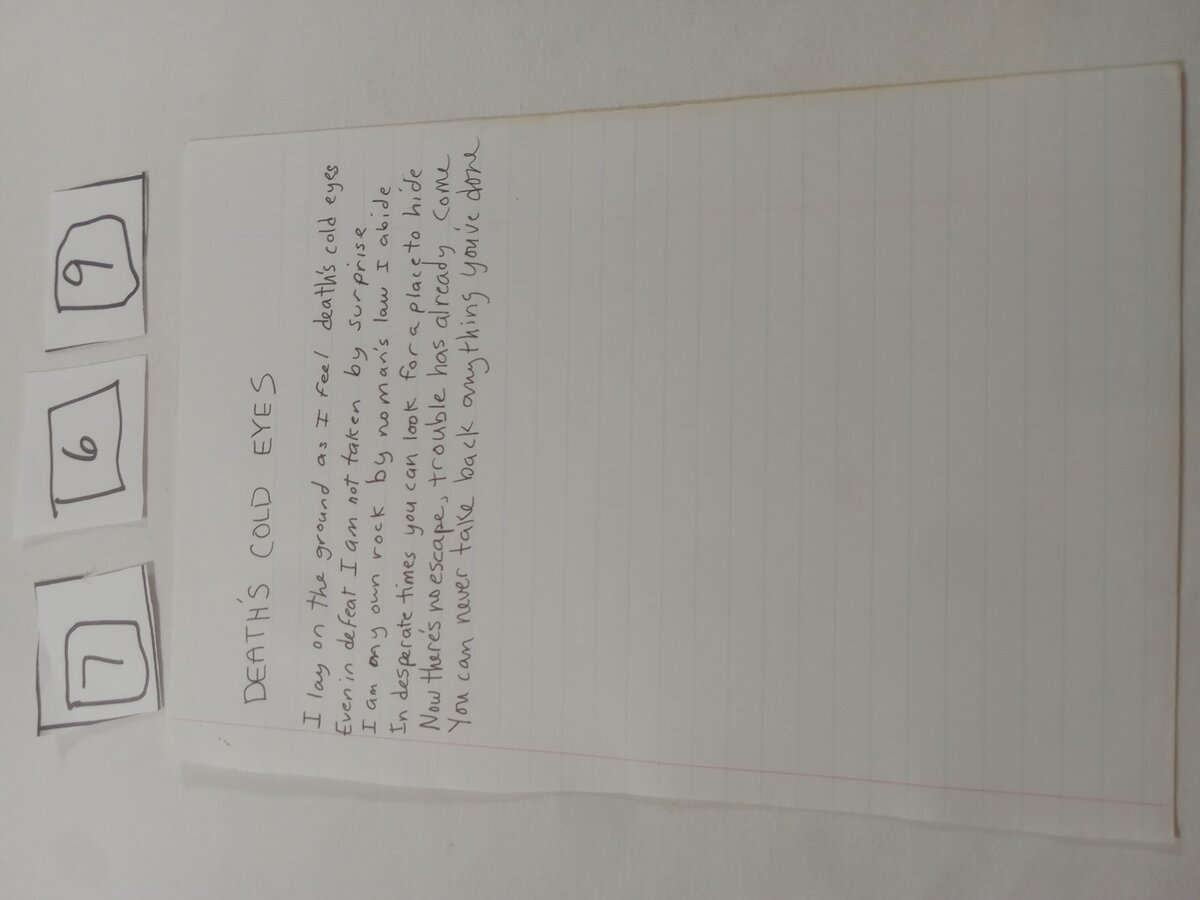 7 6 9
DEATH'S COLD EYES
I lay on the ground as I feel death's cold eyes
Even in defeat I am not taken by surprise
I am my own rock by no man's law I abide
In desperate times you can look for a place to hide
Now there's no escape, trouble has already come
You can never take back anything you've done